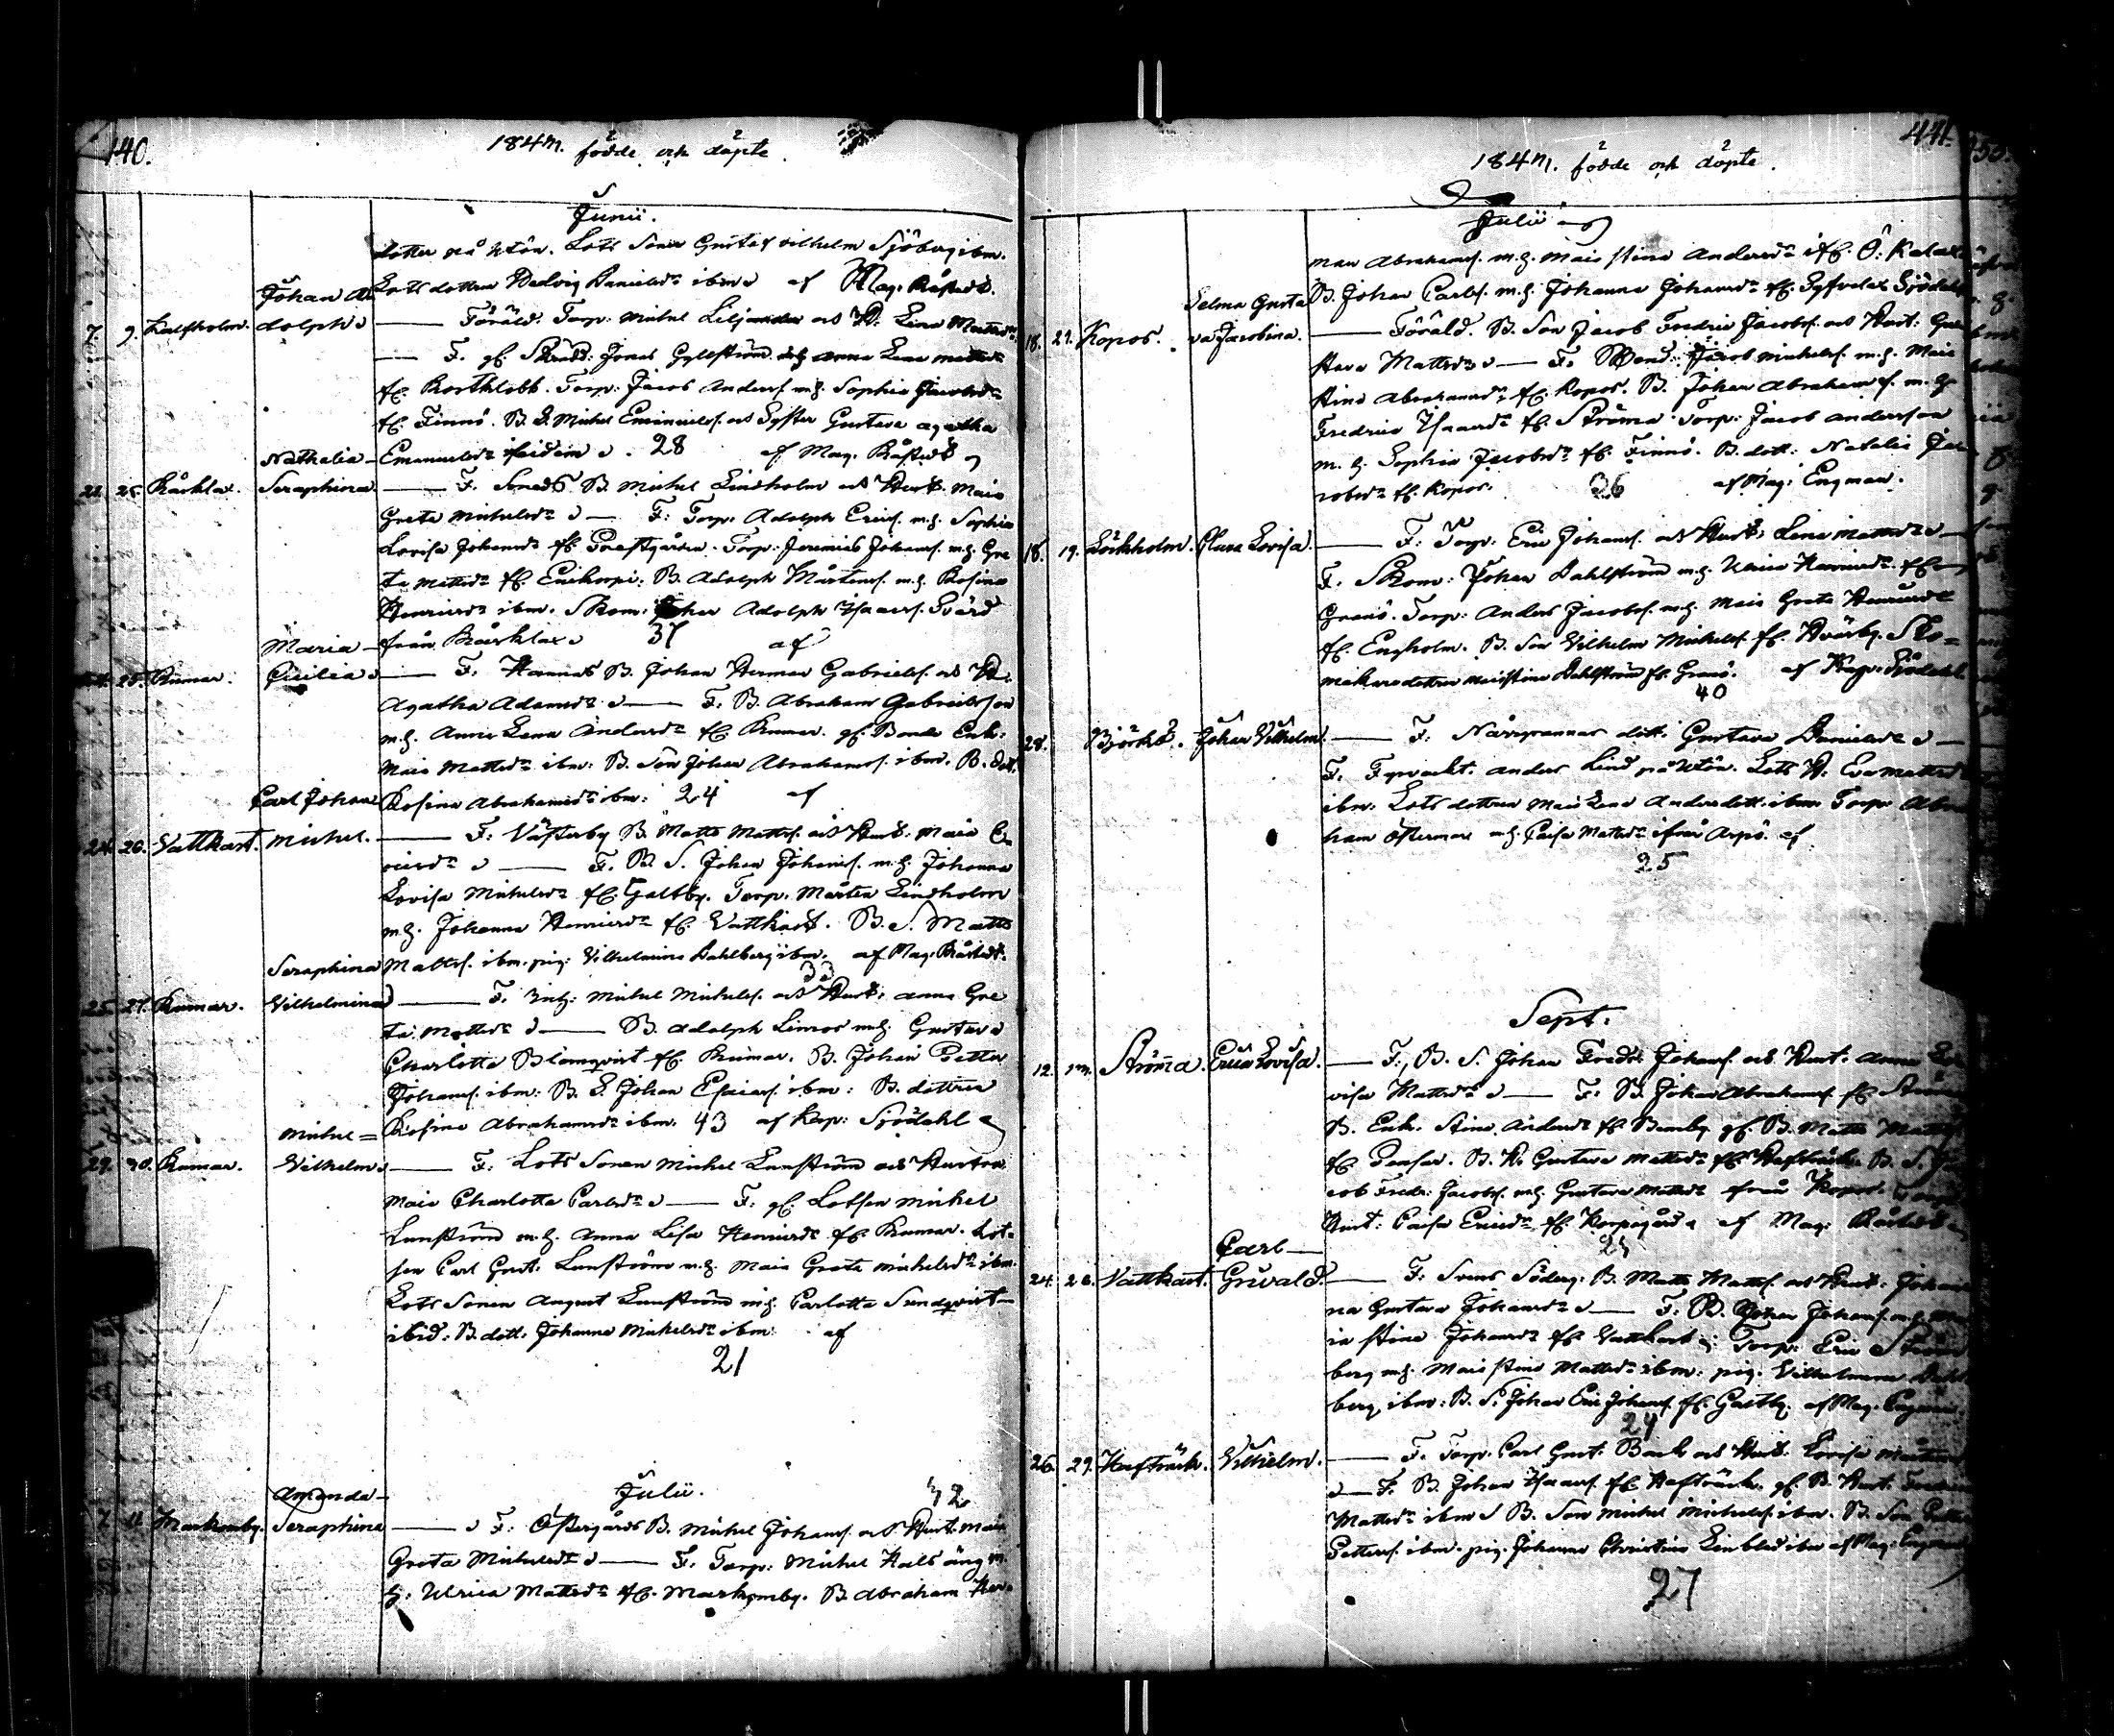 140.
184 födde och döpte
Junii.
dotter på Utön. Lots Sonen Gustaf Vilhelm Sjöberg ibm.
Johan A= Lots dottren Hedvig Danielsdr ibm af Mag. Råstedt.
7. 9. Kalfholm. dolph Föräld. Torp: Michel och H: Lena Mattsdr
F. gl. Jonas Gyllström m.h. Anna Lena
fr. Korsklobb. Torp: Jacob Anderss. m.h. Sophia Jacobsdr
fr. Finnö. B. S. Michel Emanuelss. och Syster Gustava Agatha
Nathalia Emanuelsdr ibidem 28 af Mag. Råstedt
25. Kårklax. Seraphina F. B. Michel Lindholm och Hust. Maia
Greta Michelsdr F: Torp: Adolph Ericss. m.h. Sophia
Lovisa Johansdr fr. Prestgården. Torp: Jeremias Johanss. m.h. Gre
ta Mattsdr fr. B. Adolph Mårtenss. m.h. Rosina
Henricsdr ibm. Skom: Johan Adolph Isaacss. Svärd
Maria från Kårklax 37 af
25. Rumar. Cicilia F: Hannas B. Johan Herman Gabrielss. och H.
Agatha Adamsdr F. B. Abraham Gabrielsson
m.h. Anna Lena Andersdr fr. Rumar. gl. Bonde Enk:
Maia Mattsdr ibm: B. Son Johan Abrahamss. ibm. B. dott.
Carl Johan Rosina Abrahamsdr ibm: 24 af
24. 26. Vattkast. Michel. F: Västerby B. Matts Mattss. och Hust. Maia E
ricsdr F. B. S. Johan Johanss. m.h. Johanna
Lovisa Michelsdr fr. Galtby. Torp. Mårten Lindholm
m.h. Johanna Henricsdr fr. Vattkast. B. S. Matts
Seraphina Mattss. ibm. pig: Vilhelmina Dahlberg ibm. af Mag. Råstedt.
33
25. 27. Rumar. Vilhelmina F. Michel Michelss. och Hust. Anna Gre
ta Mattsdr B. Adolph Limos m.h. Gustava
Charlotta Blomqvist fr. Rumar. B. Johan Petter
Johanss. ibm: B. S. Johan Esaiass. ibm: B. dottren
Michel = Rosina Abrahamsdr ibm. 43 af Kap: Sjödahl
29. 30. Rumar. Vilhelm F: Lots Sonen Michel Lunström och Hustru
Maia Charlotta Carlsdr F: gl. Lotsen Michel
Lunström m.h. Anna Lisa Henricsdr fr. Rumar. Lot=
sen Carl Gust. Lunström m.h. Maia Greta Michelsdr ibm.
Lots Sonen August Lunström m.h. Carlotta Sundqvist
ibid: B. dott. Johanna Michelsdr ibm: af
21
Julii. 32
Amanda
7. 11. Markomby. Seraphina F: Östergårds B. Michel Johanss. och Hust. Maia
Greta Michelsdr F. Torp: Michel Kalsäng m.
h. Ulrica Mattsdr fr. Markomby. B. Abraham Her=
441.
184 födde och döpte.
Julii
man Abrahamss. m.h. Maia Stina Andersdr ifr. Ö: Kalax
Selma Gusta B. Johan Carlss. m.h. Johanna Johansdr fr.
18. 21. Kopos. va Jacobina. Föräld. B. Son Jacob Fredric Jacobss. och Hust: Gu
stava Mattsdr F. Bond. Jacob Michelss. m.h. Maia
Stina Abrahamsdr fr. Kopos. B. Johan Abrahamss. m.h.
Fredrica Isaacsdr fr. Ströma Torp: Jacob Andersson
m.h. Sophia Jacobsdr fr. Finnö. B. dott: Natalia Jac
cobsdr fr. Kopos. 26 af Mag: Engman.
18. 19. Löckholm. Clara Lovisa. F: Torp: Eric Johanss. och Hust: Lena Mattsdr
F. Skom: Johan Dahlström m.h. Ulrica fr.
Granö. Torp: Anders Jacobss. m.h. Maia Greta Henricsdr
fr. Engholm. B. Son Vilhelm Michelss. fr. Sko=
makaredottren Maia Stina Dahlström fr. Granö. af Kap: Sjödahl
40
28. Björkö. Johan Vilhelm. F. dott. Gustava Danielsdr
F. Fyrvackt. Anders Lind på Utön. Lots H. Eva Mattsd
ibm: Lots dottren Maia Lena Andersdott. ibm Torp: Abra
ham Östermare m.h. Caisa Matsdr ifrån Aspö. af
25
Sept.
12. Ströma. Erica Lovisa. F., B. S. Johan Fredr. Johanss. och Hust. Anna Lo
visa Mattsdr F: B. Johan Abrahamss. fr. Ström
B. Enk. Stina Andersdr fr. Benby gl. B. Matts Matts
fr. Pensar. B. H. Gustava Mattsdr fr. Hafträsk. B. S. Ja
cob Fredr: Jacobss. m.h. Gustava Mattsdr ifrån Kopos. Torp
Hust: Caisa Ericsdr fr. Korpogård af Mag: Råstedt
Carl 25
24. 26. Vattkast. Grivald. F. Svens Söderg: B. Matts Mattss. och Hust. Johan
na Gustava Johansdr F: B. Johan Johanss. m.h. Ma
ia Stina Johansdr fr. Vattkast Torp: Eric Ström
berg m.h. Maia Stina Mattsdr ibm: pig. Vilhelmina Dahl
berg ibm: B. S. Johan Eric Johanss. fr. Galtby. af Mag. Engman.
24
26. 29. Hafträsk. Vilhelm. F. Torp. Carl Gust. Back och Hust. Lovisa
F. B. Johan Isaacss. fr. Hafträsk. gl. B. Hust. Fredrica
Mattsdr ibm B. Son Michel Michelss. ibm. B. Son Petter
Petterss. ibm. pig. Johanna Christina Linblad ibm af Mag: Engman
27